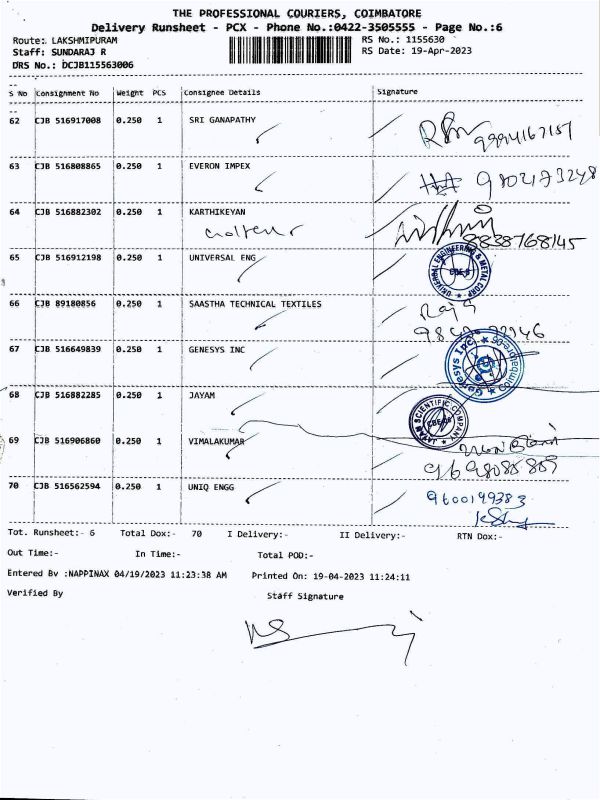 THE PROFESSIONAL COURIERS, COIMBATORE
Delivery Runsheet - PCX - Phone No.:0422-3505555 - Page No.:6
Route: LAKSHMIPURAM RS No.: 1155630
Staff: SUNDARAJ R RS Date: 19-Apr-2023
DRS No.: DCJB115563006
S No Consignment No Weight PCS Consignee Details Signature
62 CJB 516917008 0.250 1 SRI GANAPATHY
9994167157
63 CJB 516808865 0.250 1 EVERON IMPEX
9802173248
64 CJB 516882302 0.250 1 KARTHIKEYAN
8838768145
65 CJB 516912198 0.250 1 UNIVERSAL ENG
UNIVERSAL ENGINEERING & METAL CORP
66 CJB 89180856 0.250 1 SAASTHA TECHNICAL TEXTILES
67 CJB 516649839 0.250 1 GENESYS INC
Genesys Inc
Coimbatore
68 CJB 516882285 0.250 1 JAYAM
JAYAM SCIENTIFIC COMPANY
69 CJB 516906860 0.250 1 VIMALAKUMAR
70 CJB 516562594 0.250 1 UNIQ ENGG
9600199383
Tot. Runsheet:- 6 Total Dox:- 70 I Delivery:- II Delivery:- RTN Dox:-
Out Time:- In Time:- Total POD:-
Entered By :NAPPINAX 04/19/2023 11:23:38 AM Printed On: 19-04-2023 11:24:11
Verified By Staff Signature